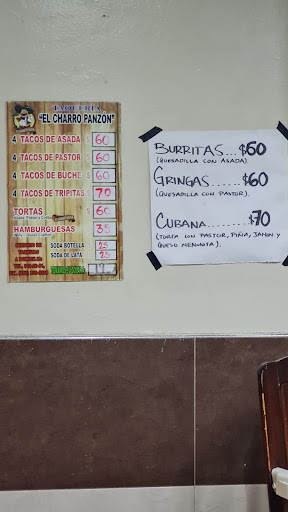 TAQUERIA
"EL CHARRO PANZON"
4 TACOS DE ASADA $ 60
4 TACOS DE PASTOR $ 60
4 TACOS DE BUCHE $ 60
4 TACOS DE TRIPITAS $ 70
TORTAS $ 60
HAMBURGUESAS $ 35
SODA BOTELLA 25
SODA DE LATA 25
BURRITAS....$60
(QUESADILLA CON ASADA).
GRINGAS......$60
(QUESADILLA CON PASTOR).
CUBANA.......$70
(TORTA CON PASTOR, PIÑA, JAMON Y
QUESO MENONITA).